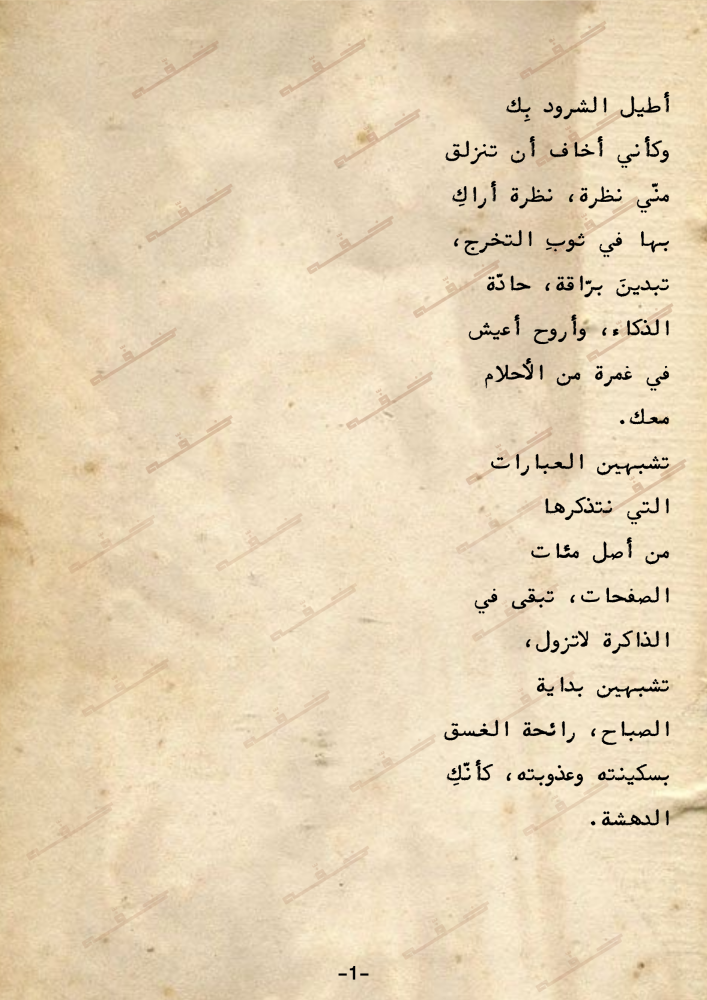 أطيل الشرود بِك
وكأني أخاف أن تنزلق
منّي نظرة، نظرة أراكِ
بها في ثوبِ التخرج،
تبدينَ برّاقة، حادّة
الذكاء، وأروح أعيش
في غمرة من الأحلام
معك.
تشبهين العبارات
التي نتذكرها
من أصل مئات
الصفحات، تبقى في
الذاكرة لاتزول،
تشبهين بداية
الصباح، رائحة الغسق
بسكينته وعذوبته، كأنّكِ
الدهشة.
-1-